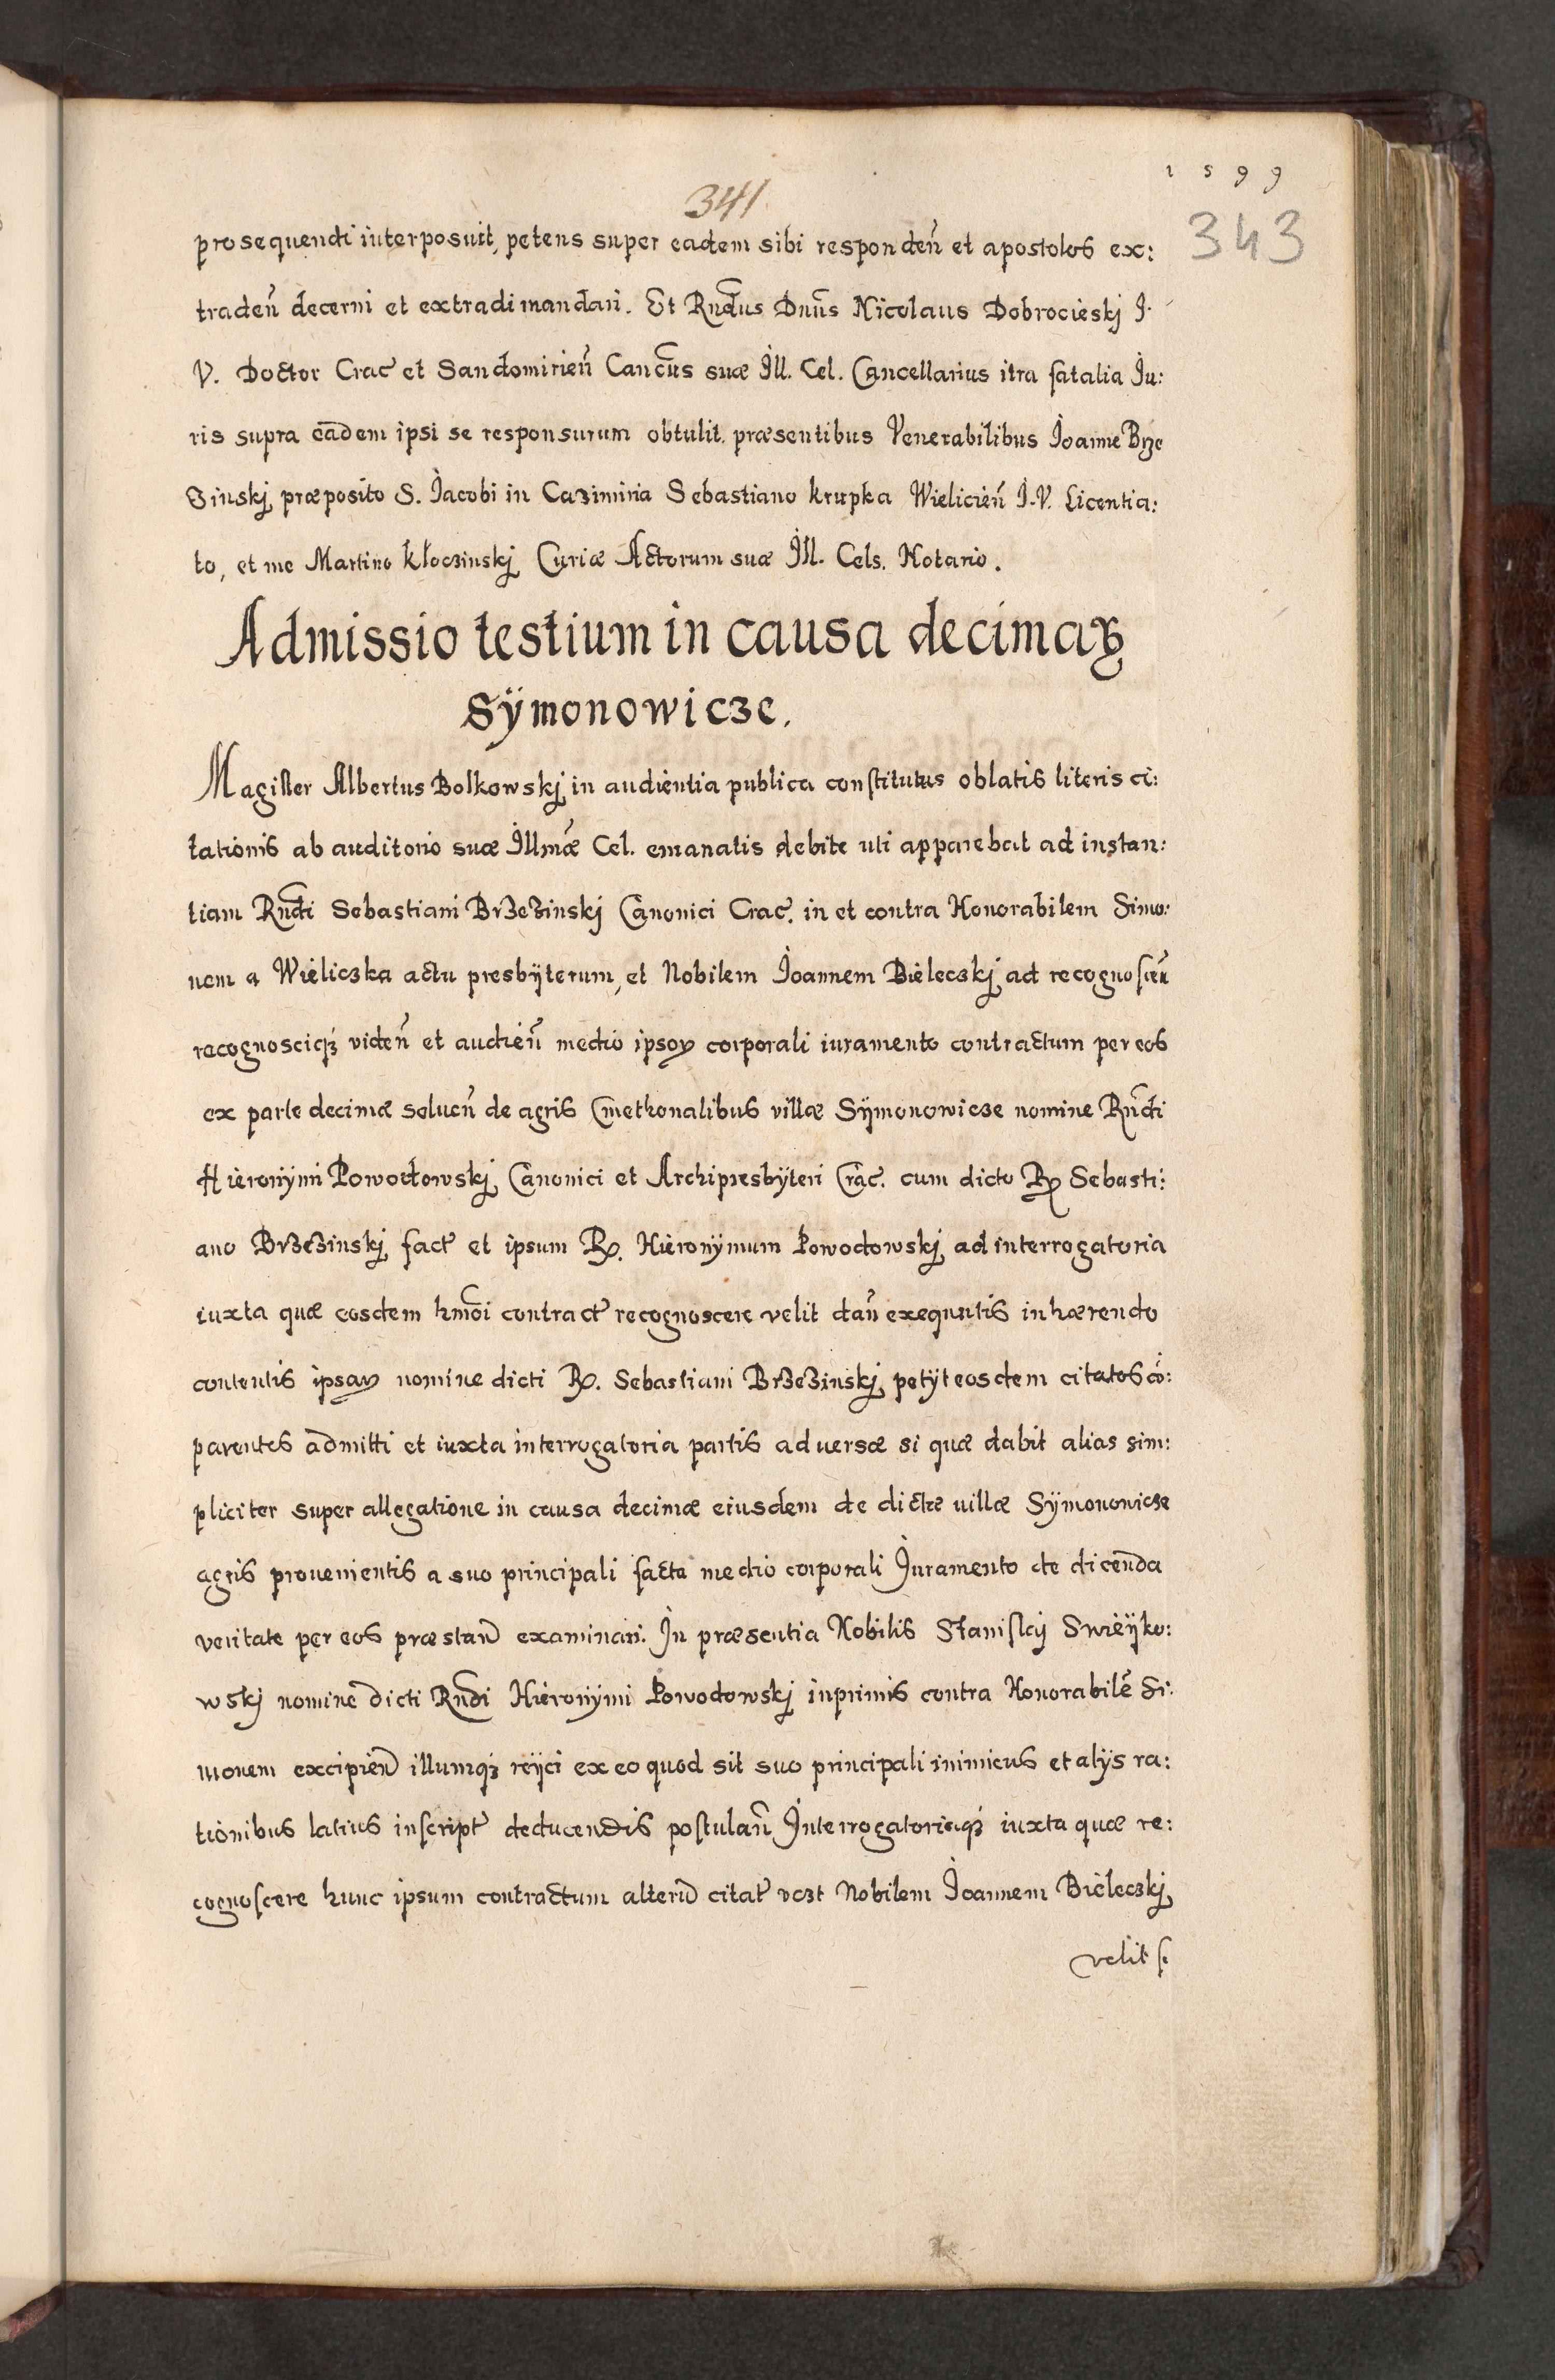 1599
341
343
prosequendi interposuit, petens super eadem sibi responden̄ et apostolos ex:
traden̄ decerni et extradi mandari. Et Rn̄dus Dn̄us Nicolaus Dobrocieskj J.
V. Doctor Crac̄ et Sandomirien̄ Canc̄us suæ Ill. Cel. Cancellarius itra fatalia Iu:
ris supra eādem ipsi se responsurum obtulit. præsentibus Venerabilibus Joanne Brze
zinskj præposito S. Jacobi in Cazimiria Sebastiano Krupka Wielicien̄ J.V. Licentia:
to, et me Martino Kłoczinskj Curiæ Actorum suæ Ill. Cels. Notario.
Admissio testium in causa decimaꝝ
Sÿmonowicze.
Magister Albertus Bolkowskj in audientia publica constitutus oblatis literis ci:
tationis ab auditorio suæ Illmǣ Cel. emanatis debite uti apparebat ad instan:
tiam Rn̄di Sebastiani Brzezinskj Canonici Crac̄. in et contra Honorabilem Simo:
nem a Wieliczka actu presbÿterum, et Nobilem Joannem Bieleczkj ad recognoscen̄
recognosciqꝫ viden̄ et audien̄ medio ipsoꝝ corporali iuramento contractum per eos
ex parte decimæ soluen̄ de agris Cmethonalibus villæ Sÿmonowicze nomine Rn̄di
Hieronÿmi Powodowskj Canonici et Archipresbÿteri Crac̄. cum dicto R. Sebasti:
ano Brzezinskj fact̄ et ipsum R. Hieronÿmum Powodowskj ad interrogatoria
iuxta quæ eosdem hmōi contract̄ recognoscere velit dan̄ exequutis inhærendo
contentis ipsaꝝ nomine dicti R. Sebastiani Brzezinskj petÿt eosdem citatos cō:
parentes admitti et iuxta interrogatoria partis aduersæ si quæ dabit alias sim:
pliciter super allegatione in causa decimæ eiusdem de dictæ uillæ Sÿmonowicze
agris prouenientis a suo principali facta medio corporali Juramento de dicenda
veritate per eos præstan̄ examinari. In præsentia Nobilis Stanislaj Swieÿko:
wskj nomine dicti Rn̄di Hieronÿmi Powodowskj inprimis contra Honorabilē Si:
monem excipien̄ illumqꝫ reÿci ex eo quod sit suo principali inimicus et alÿs ra:
tionibus latius inscript̄ deducendis postulan̄ Interrogatoriaqꝫ iuxta quæ re:
cognoscere hunc ipsum contractum alterū citat̄ vczt Nobilem Joannem Bieleczkj
velit